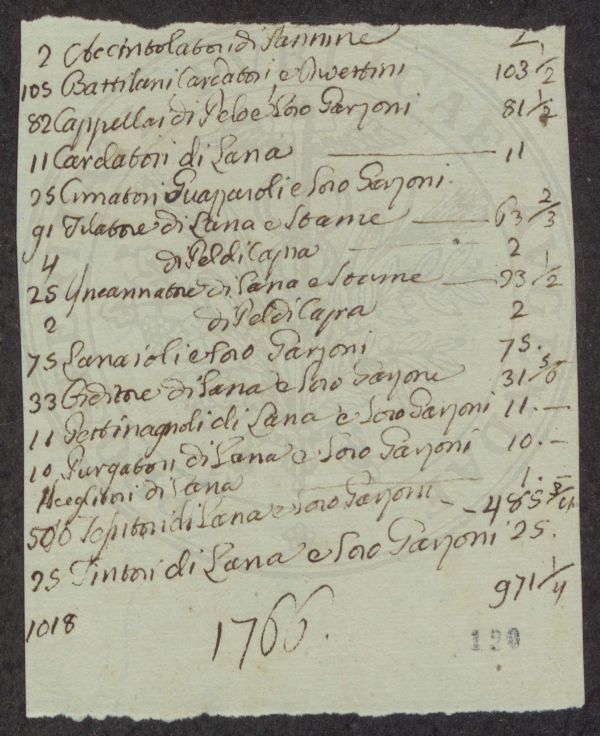 2 Accintolatori di Pannine 2
105 Battilani Cardatori, e Divettini 103 1/2
82 Cappellai di Pelo e Loro Garzoni 81 1/2
11 Cardatori di Lana 11
25 Cimatori e Loro Garzoni.
91 Filatore di Lana e Stame 63 2/3
4 di Pel di Capra 2
25 Incannatore di Lana e Stame 23 1/2
2 di Pel di Capra 2
75 Lanaioli e Loro Garzoni 75.
33 Orditore di Lana e Loro Garzone 31 5/6
11 Pettinagnoli di Lana e Loro Garzoni 11.-
10 Purgatori di Lana e Loro Garzoni 10.-
1 Sceglitori di Lana 1.-
Tessitori di Lana e Loro Garzoni 485 3/4
25 Tintori di Lana e Loro Garzoni 25.
971 1/4
1018
1766.
120